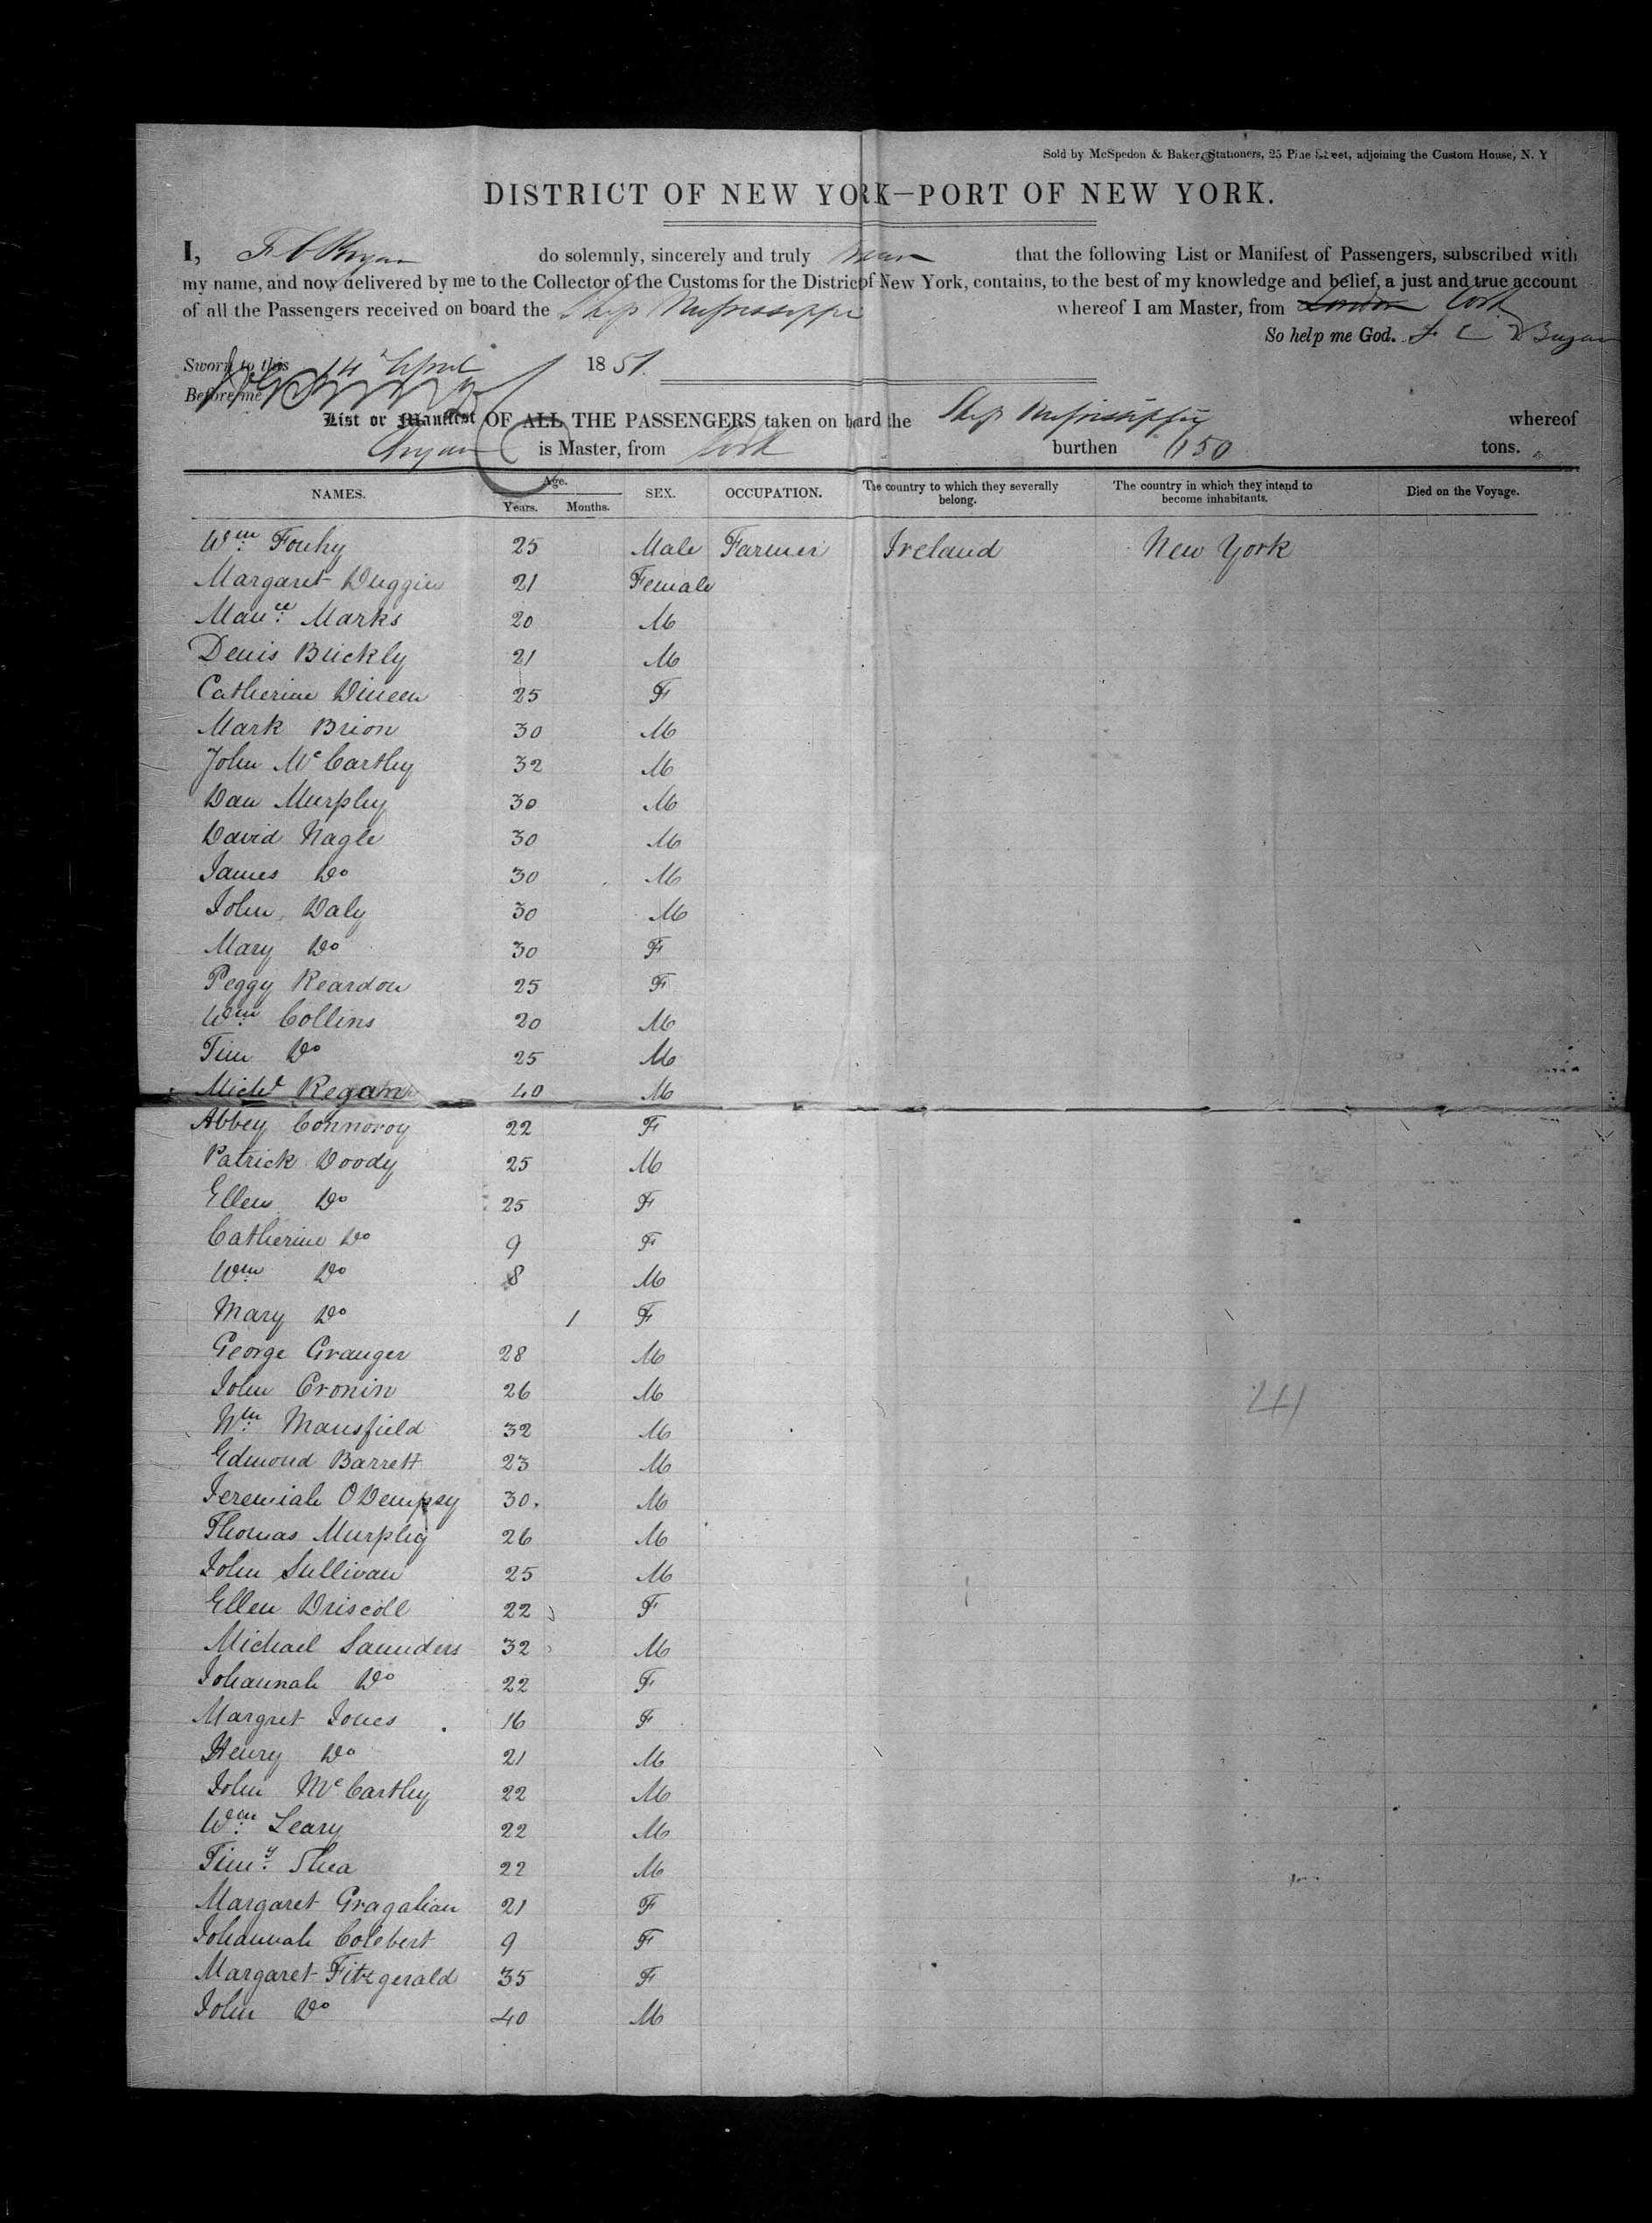 Sold by McSpedon & Baker, Stationers, 25 Pine Street, adjoining the Custom House, N. Y
DISTRICT OF NEW YORK—PORT OF NEW YORK.
I, do solemnly, sincerely and truly swear that the following List or Manifest of Passengers, subscribed with
my name, and now delivered by me to the Collector of the Customs for the District of New York, contains, to the best of my knowledge and belief, a just and true account
of all the Passengers received on board the Ship Mississippi whereof I am Master, from London Cork
So help me God.
Sworn to this 14 April 1851.
Before me
List or Manifest OF ALL THE PASSENGERS taken on board the Ship Mississippi whereof
is Master, from Cork burthen tons.
NAMES. Age. Years. Months. SEX. OCCUPATION. The country to which they severally belong. The country in which they intend to become inhabitants. Died on the Voyage.
Wm Fouhy 25 Male Farmer Ireland New York
Margaret Duggin 21 Female
Mauce Marks 20 M
Denis Buckly 21 M
Catherine Dineen 25 F
Mark Brion 30 M
John McCarthy 32 M
Dan Murphy 30 M
David Nagle 30 M
James Do 30 M
John Daly 30 M
Mary Do 30 F
Peggy Reardon 25 F
Wm Collins 20 M
Tim Do 25 M
Michl Regan 40 M
Abbey Connoroy 22 F
Patrick Doody 25 M
Ellen Do 25 F
Catherine Do 9 F
Wm Do 8 M
Mary Do 1 F
George Granger 28 M
John Cronin 26 M
24
Wm Mansfield 32 M
Edmond Barrett 23 M
Jeremiah ODempsy 30. M
Thomas Murphy 26 M
John Sullivan 25 M
Ellen Driscoll 22 F
Michael Saunders 32 M
Johannah Do 22 F
Margret Jones 16 F
Henry Do 21 M
John McCarthy 22 M
Wm Leary 22 M
Timy Shea 22 M
Margaret Gragahan 21 F
Johannah Colebert 9 F
Margaret Fitzgerald 35 F
John Do 40 M